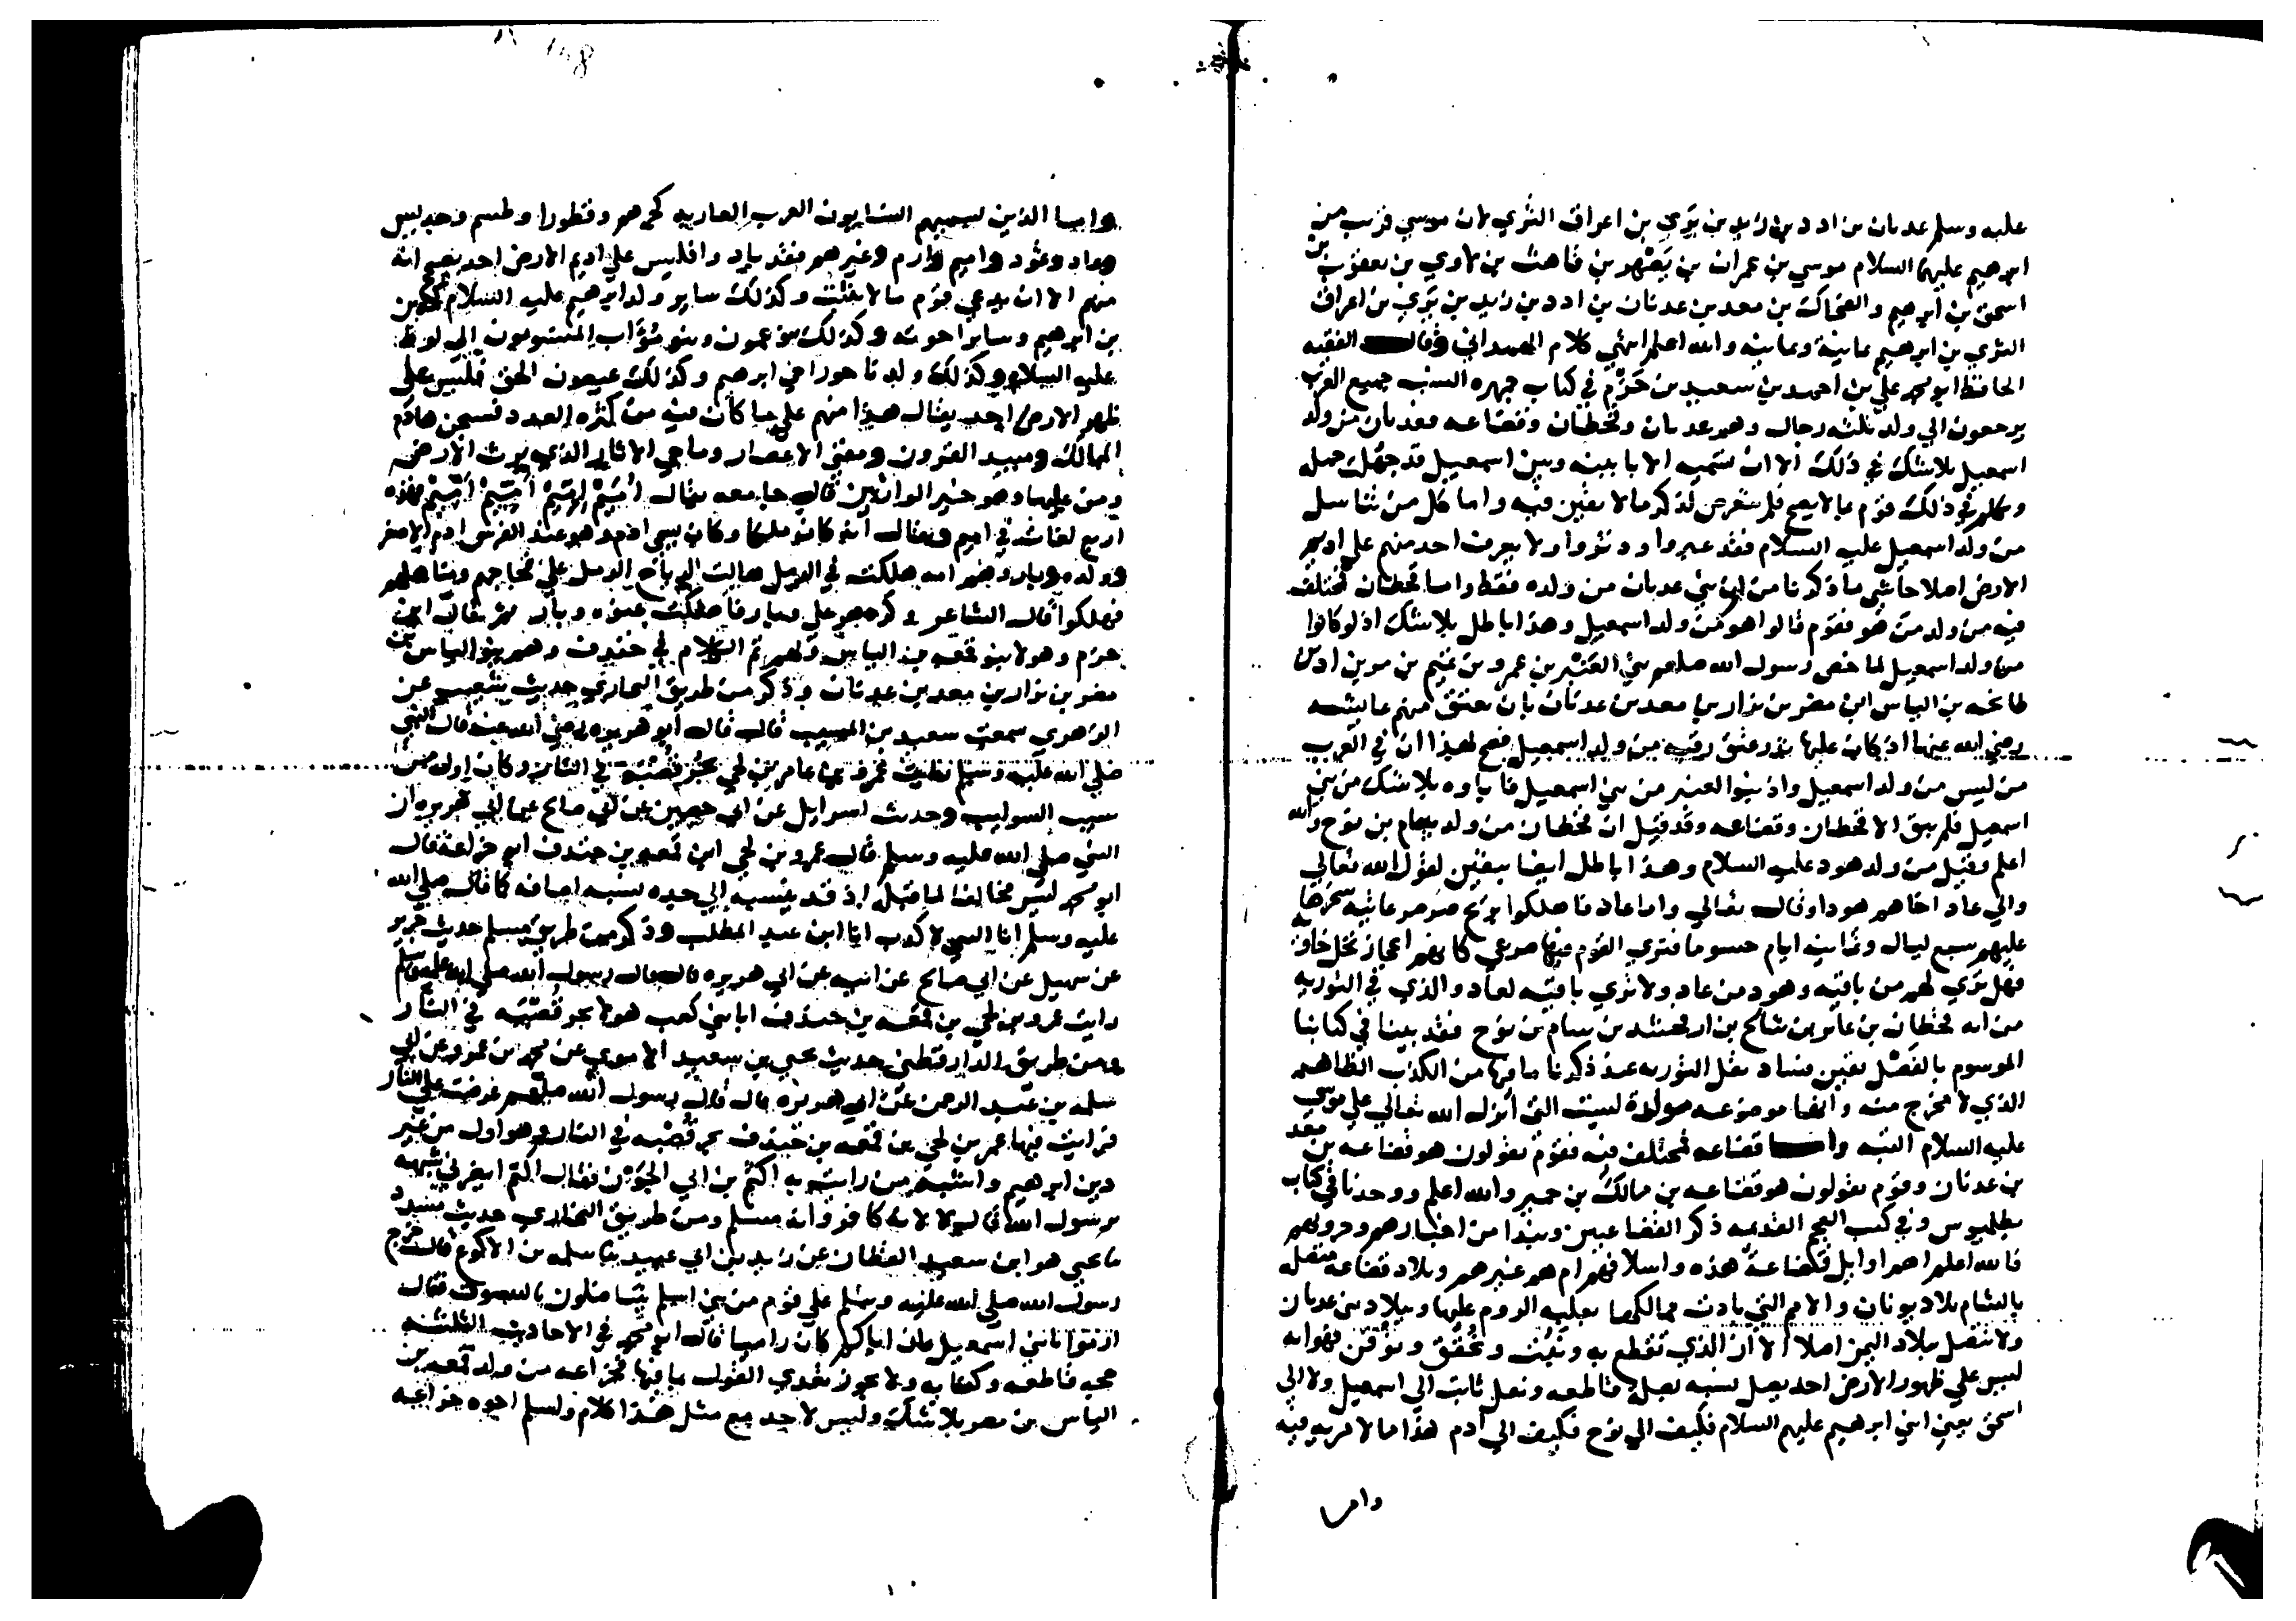 عليه وسلم عدنان بن ادد بن زيد بن يري بن اعراق الثري لان موسي قريب من
ابرهيم عليهما السلام موسي بن عمران بن يصهر بن قاهث بن لاوي بن يعقوب بن
اسحق بن ابرهيم والضحاك بن معد بن عدنان بن ادد بن زيد بن يري بن اعراق
الثري بن ابرهيم ثمانية وثمانية والله اعلم انتهي كلام الهمداني وقال الفقيه
الحافظ ابو محمد علي بن احمد بن سعيد بن حزم في كتاب جمهره النسب جميع العرب
يرجعون الي ولد ثلثه رجال وهم عدنان وقحطان وقضاعه فعدنان من ولد
اسمعيل بلا شك في ذلك الا ان تسميه الابا بينه وبين اسمعيل قد جهلت جمله
وتكلم في ذلك قوم بما لا يصح فلم نتعرض لذكر ما لا يقين فيه واما كل من تناسل
من ولد اسمعيل عليه السلام فقد غبروا ودثروا ولا يعرف احد منهم علي اديم
الارض اصلا حاشي ما ذكرنا من ان بني عدنان من ولده فقط واما قحطان فمختلف
فيه من ولد من هو فقوم قالوا هو من ولد اسمعيل وهذا باطل بلا شك اذ لو كانوا
من ولد اسمعيل لما خص رسول الله صلعم بني العنبر بن عمرو بن تميم بن مر بن اد بن
طابخه بن الياس ابن مضر بن نزار بن معد بن عدنان بان تعتق منهم عايشه
رضي الله عنها اذ كان عليها نذر عتق رقبه من ولد اسمعيل فصح لهذا ان في العرب
من ليس من ولد اسمعيل واذ بنوا العنبر من بني اسمعيل فاباوه بلا شك من بني
اسمعيل فلم يبق الا قحطان وقضاعه وقد قيل ان قحطان من ولد سام بن نوح والله
اعلم وقيل من ولد هود عليه السلام وهذا باطل ايضا بيقين لقول الله تعالي
والي عاد اخاهم هودا وقال تعالي واما عاد فاهلكوا بريح صرصر عاتيه سخرها
عليهم سبع ليال وثمانيه ايام حسوما فتري القوم فيها صرعي كانهم اعجاز نخل خاويه
فهل تري لهم من باقيه وهود من عاد ولا تري باقيه لعاد والذي في التوريه
من انه قحطان بن عابر بن شالح بن ارفخشد بن سام بن نوح فقد بينا في كتابنا
الموسوم بالفصل يقين فساد نقل التوريه عند ذكرنا ما فيها من الكذب الظاهر
الذي لا مخرج منه وانها موضوعه مولدة ليست التي انزل الله تعالي علي موسي
عليه السلام البته واما قضاعه فمختلف فيه فقوم يقولون هو قضاعه بن معد
بن عدنان وقوم يقولون هو قضاعه بن مالك بن حمير والله اعلم ووجدنا في كتاب
بطليموس وفي كتب العجم القديمه ذكر القضاعيين ونبذا من اخبارهم وحروبهم
فالله اعلم اهم اوايل قضاعة هذه واسلافهم ام هم غيرهم وبلاد قضاعه متصله
بالشام بلاد يونان والامم التي بادت ممالكها بغلبه الروم عليها وببلاد بني عدنان
ولا تتصل ببلاد اليمن اصلا الا ان الذي نقطع به ونثبت ونحقق ونوقن فهو انه
ليس علي ظهور الارض احد يصل نسبه بصلة قاطعه ونقل ثابت الي اسمعيل ولا الي
اسحق يعني ابني ابرهيم عليهم السلام فكيف الي نوح فكيف الي ادم هذا ما لا مريه فيه
واما
واما الذين يسميهم النسابون العرب العاربه كجرهم وقطورا وطسم وجديس
وعاد وثمود واميم وارم وغيرهم فقد بادو فليس علي اديم الارض احد يصح انه
منهم الا ان يدعي قوم ما لا يثبت وكذلك ساير ولد ابرهيم عليه السلام كمدين
بن ابرهيم وساير اخوته وكذلك بنو عمون وبنو مؤاب المنسوبون الي لوط
عليه السلام وكذلك ولد ناحورا خي ابرهيم وكذلك عيصون الحق فليس علي
ظهر الارض احد يقال هذا منهم علي ما كان فيه من كثره العدد فسبحن هادم
الممالك ومبيد القرون ومفني الاعصار وماحي الاثار الذي يرث الارض
ومن عليها وهو خير الوارثين قال جامعه يقال اميم اميم اميم اميم فهذه
اربع لغات في اميم ويقال انه كان ملكا وكان يسمي ادم وهو عند الفرس ادم الاصغر
وولده وبار وهم امه هلكت في الرمل هالت الرياح الرمل علي فجاجهم ومناهلهم
فهلكوا قال الشاعر وكر دهر علي وبار فاهلكت عنوه وبار ثم قال ابن
حزم وهولا بنو قمعه بن الياس ولهم تم الكلام في خندف وهم بنو الياس بن
مضر بن نزار بن معد بن عدنان وذكر من طريق البخاري حديث شعيب عن
الزهري سمعت سعيد بن المسيب قال قال ابو هريره رضي الله عنه قال النبي
صلي الله عليه وسلم رايت عمرو بن عامر بن لحي يجر قصبه في النار وكان اول من
سيب السوايب وحديث اسرايل عن ابي حصين عن ابي صالح عن ابي هريره ان
النبي صلي الله عليه وسلم قال عمرو بن لحي ابن قمعه بن خندف ابو خزاعة قال
ابو محمد ليس مخالفا لما قبله اذ قد ينسبه الي جده نسبه اضافه كما قال صلي الله
عليه وسلم انا النبي لا كذب انا ابن عبد المطلب وذكر من طريق مسلم حديث جرير
عن سهيل عن ابي صالح عن ابيه عن ابي هريره قال قال رسول الله صلي الله عليه وسلم
رايت عمرو بن لحي بن قمعه بن خندف ابا بني كعب هولا يجر قصبه في النار
ومن طريق الدارقطني حديث يحيي بن سعيد الاموي عن محمد بن عمرو عن ابي
سلمه بن عبد الرحمن عن ابي هريره قال قال رسول الله صلعم عرضت علي النار
فرايت فيها عمر بن لحي بن قمعه بن خندف يجر قصبه في النار وهو اول من غير
دين ابرهيم واشبه من رايت به اكثم بن ابي الجون فقال اكثم ايضرني شبهه
يرسول الله قال لا لانه كافر وانت مسلم ومن طريق البخاري حديث مسدد
نا يحيي هو ابن سعيد القطان عن زيد بن ابي عبيد نا سلمه بن الاكوع قال خرج
رسول الله صلي الله عليه وسلم علي قوم من بني اسلم يتناضلون بالسوق فقال
ارموا بني اسمعيل فان اباكم كان راميا قال ابو محمد في الاحاديث الثلثه
حجه قاطعه وكفايه ولا يجوز تعدي القول بما فيها فخزاعه من ولد قمعه بن
الياس بن مضر بلا شك وليس لاحد مع مثل هذا كلام واسلم اخوه خزاعه